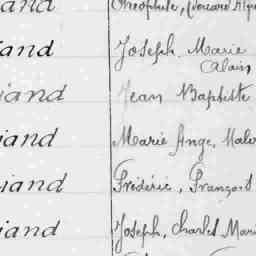 and
Théophile,
iand
Joseph Marie
Alain
iand
Jean Baptiste
iand
Marie Ange,
iand
Frédéric, François
iand
Joseph, Charles Mari